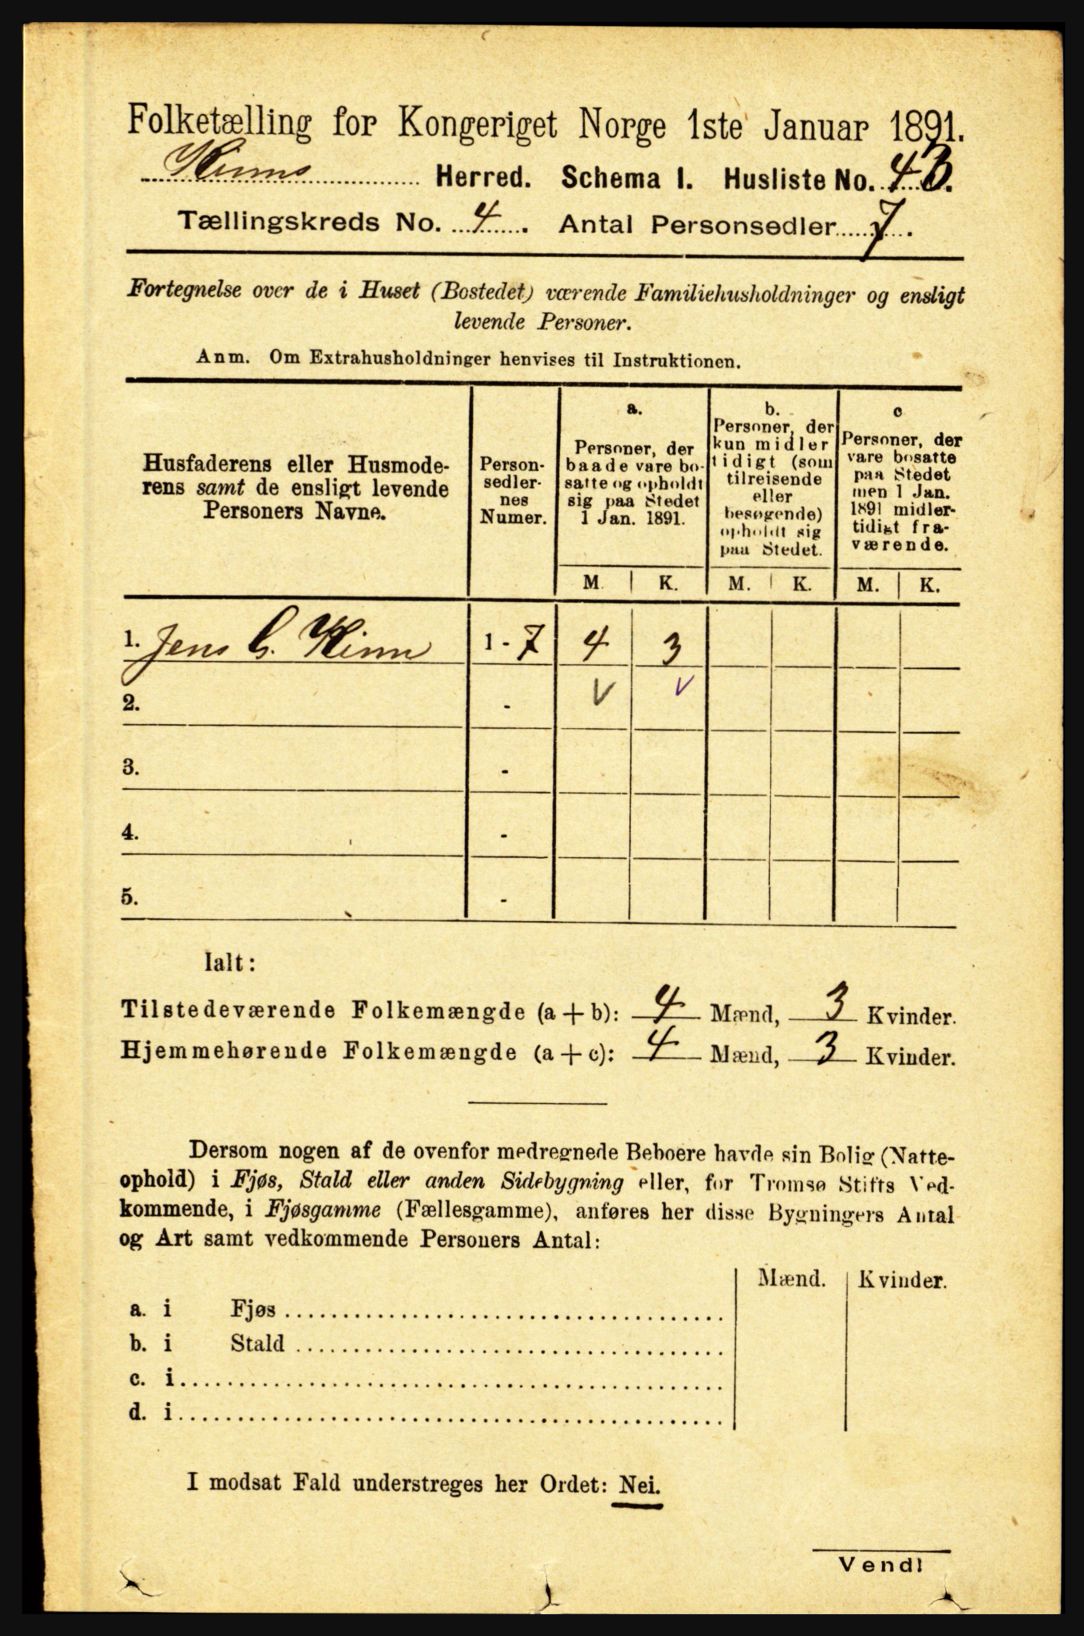 Folketælling for Kongeriget Norge 1ste Januar 1891.
Kinns Herred. Schema I. Husliste No. 43.
Tællingskreds No. 4. Antal Personsedler 7.
Fortegnelse over de i Huset (Bostedet) værende Familiehusholdninger og ensligt
levende Personer.
Anm. Om Extrahusholdninger henvises til Instruktionen.
Husfaderens eller Husmode-
rens samt de ensligt levende
Personers Navne.
Person-
sedler-
nes
Numer.
a.
Personer, der
baade vare bo-
satte og opholdt
sig paa Stedet
1 Jan. 1891.
b.
Personer, der
kun midler
tidigt (som
tilreisende
eller
besøgende)
opholdt sig
paa Stedet.
c
Personer, der
vare bosatte
paa Stedet
men 1 Jan.
1891 midler-
tidigt fra-
værende.
M. K. M. K. M. K.
1. Jens C. Kinn 1 - 7 4 3
2. - V V
3. -
4. -
5. -
Ialt:
Tilstedeværende Folkemængde (a + b): 4 Mænd, 3 Kvinder.
Hjemmehørende Folkemængde (a + c): 4 Mænd, 3 Kvinder.
Dersom nogen af de ovenfor medregnede Beboere havde sin Bolig (Natte-
ophold) i Fjøs, Stald eller anden Sidebygning eller, for Tromsø Stifts Ved-
kommende, i Fjøsgamme (Fællesgamme), anføres her disse Bygningers Antal
og Art samt vedkommende Personers Antal:
Mænd. Kvinder.
a. i Fjøs
b. i Stald
c. i
d. i
I modsat Fald understreges her Ordet: Nei.
Vend!